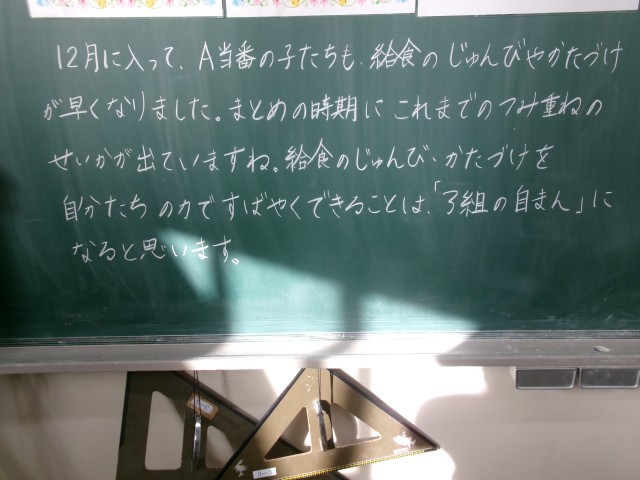 12月に入って、A当番の子たちも、給食のじゅんびやかたづけ
が早くなりました。まとめの時期にこれまでのつみ重ねの
せいかが出ていますね。給食のじゅんび・かたづけを
自分たちの力ですばやくできることは、「3組の自まん」に
なると思います。